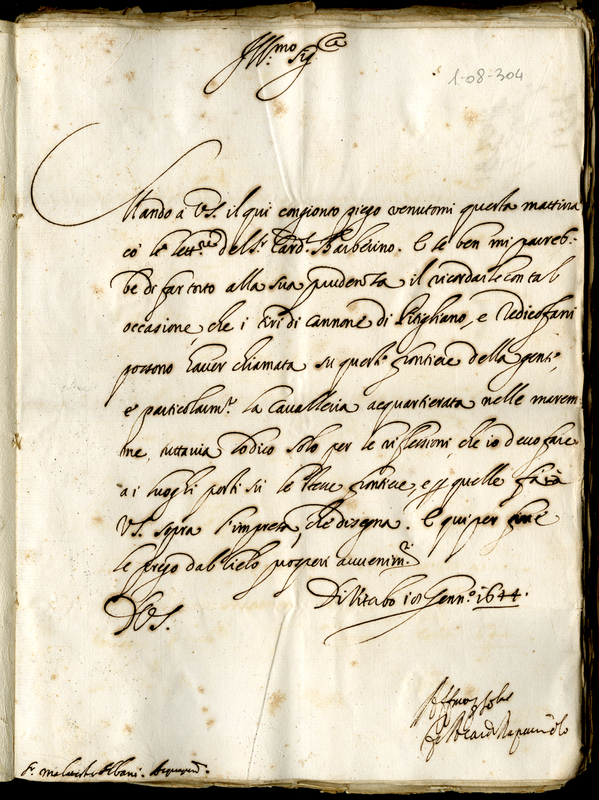 Ill.mo Sig.re
1-08-304
Mando à V.S. il qui congionto piego venutomi questa mattina
cō le lett.re del S.r Card.l Barberino. E se ben mi pareb-
be di far torto alla sua prudenza il ricordarle con tal
occasione, che i tiri di cannone di Pitigliano, e Radicofani
possono haver chiamata su queste frontiere della gente,
e particolarm.te la Cavalleria acquartierata nelle marem-
me, tuttavia lo dico solo per le riflessioni, che io devo fare
a i luoghi posti sù le stesse frontiere, e p quelle farà
V.S. sopra l'impresa, che disegna. E qui per fine
le prego dal Cielo prosperi avvenim.ti
Di Viterbo 18 Genn.o 1644.
D V.S.
S.r Malatesta Albani. Acquapend.te